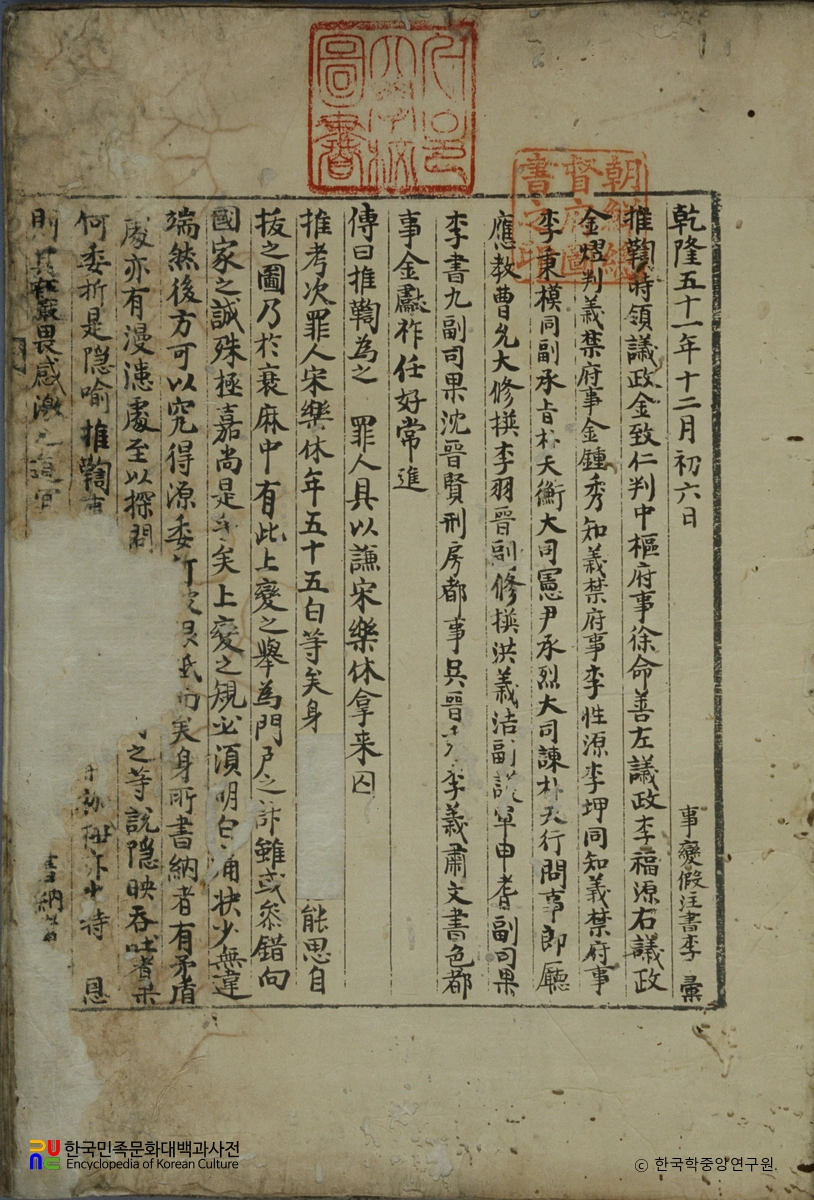 乾隆五十一年十二月初六日 事變假注書李 彙
推鞫時領議政金致仁判中樞府事徐命善左議政李福源右議政
金熤判義禁府事金鍾秀知義禁府事李性源李坪同知義禁府事
李東模同副承旨朴天衡大司憲尹承烈大司諫朴天行問事郎廳
應教曹允大修撰李羽晉副修撰洪義浩副護軍申耆副司果
李書九副司果沈晉賢刑房都事吳晉 李義肅文書色都
事金獻祚任好常進
傳曰推鞫為之 罪人具以謙宋樂休拿来囚
推考次罪人宋樂休年五十五白等矣身 能思自
拔之圖乃於衰麻中有此上變之舉為門戶之計雖或叅錯向
國家之誠殊極嘉尚是 矣上變之規必須明白 陳少無違
端然後方可以究得源委 矣身所書納者有矛盾
處亦有漫漶處至以探問 之等說隐映吞吐者
何委折是隐喻推鞫 亦 待 恩
則 嚴畏感激之 書納
圖書
朝鮮總
督府圖
書之印
한국민족문화대백과사전
Encyclopedia of Korean Culture
© 한국학중앙연구원.